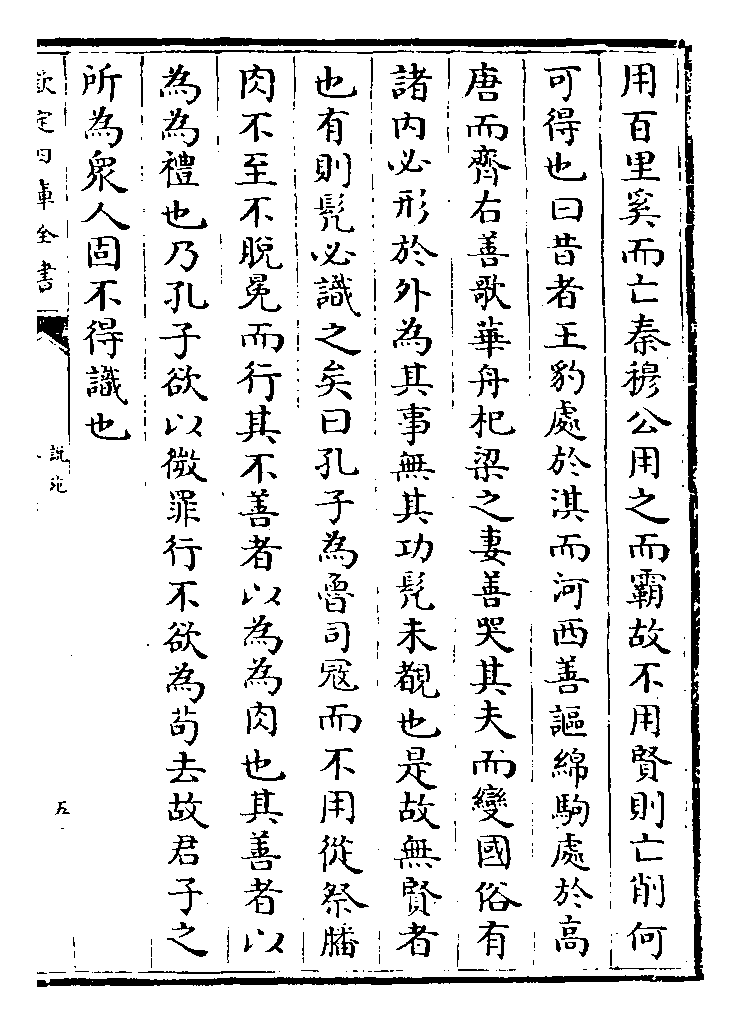 用百里奚而亡秦穆公用之而霸故不用賢則亡削何
可得也曰昔者王豹處於淇而河西善謳綿駒處於高
唐而齊右善歌華舟杞梁之妻善哭其夫而變國俗有
諸内必形於外為其事無其功髠未覩也是故無賢者
也有則髠必識之矣曰孔子為魯司冦而不用從祭膰
肉不至不脫冕而行其不善者以為為肉也其善者以
為為禮也乃孔子欲以微罪行不欲為茍去故君子之
所為衆人固不得識也
欽定四庫全書
說苑
五